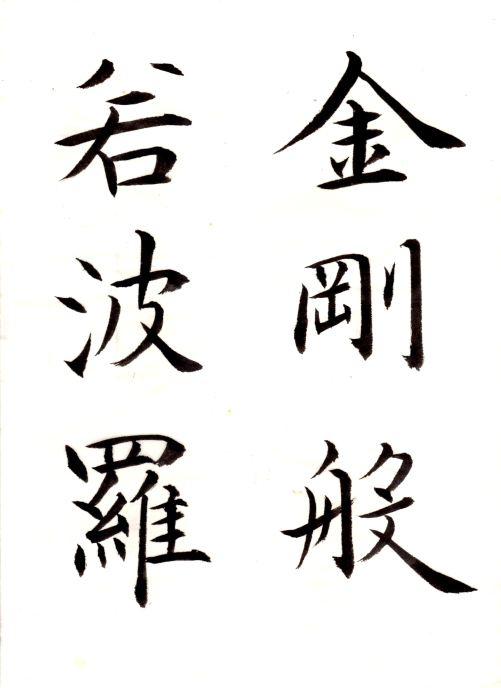 金剛般
若波羅